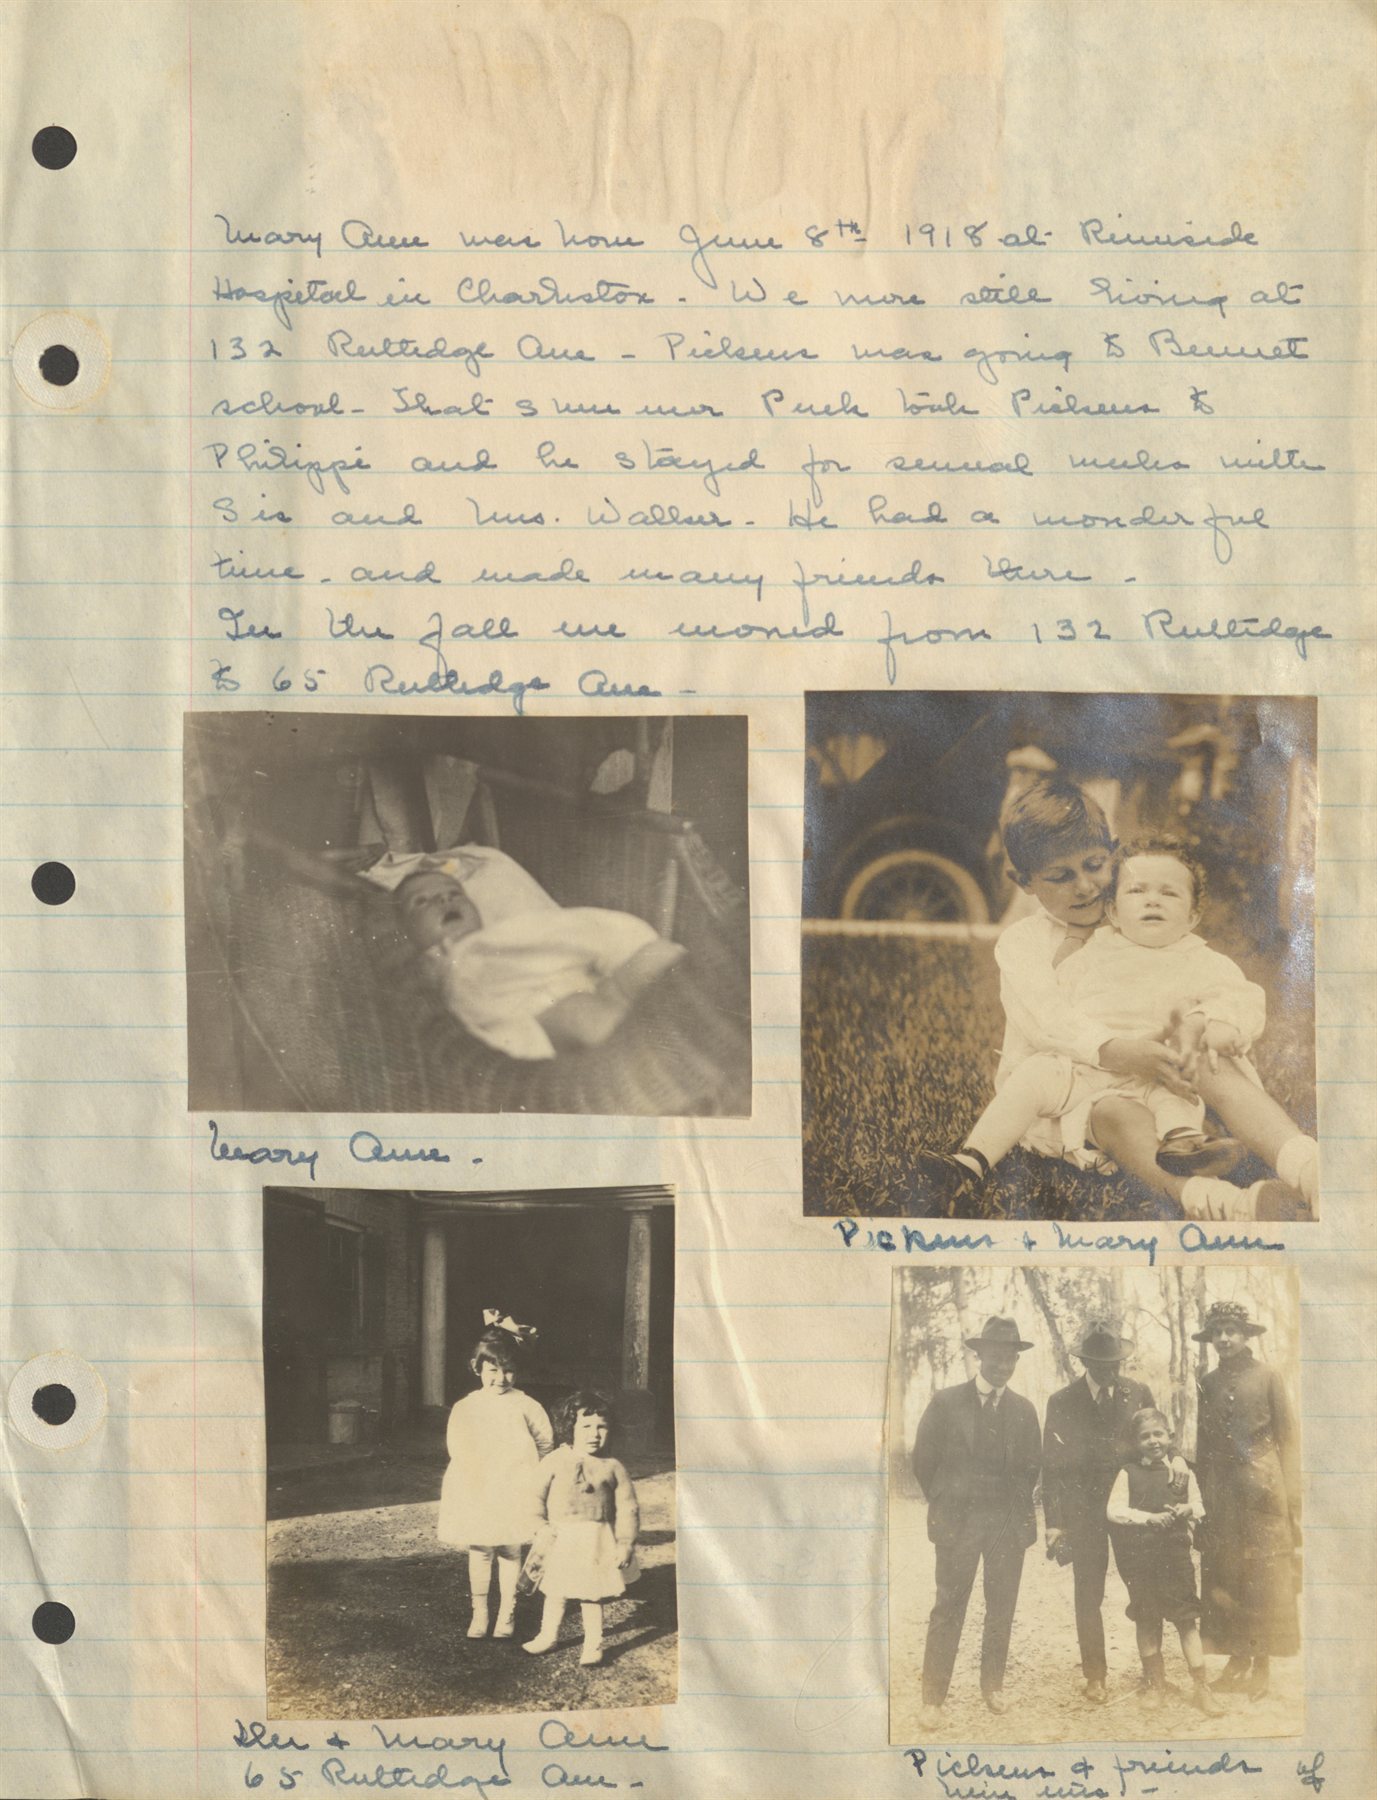 Mary Ann was born June 8th 1918 at Riverside
Hospital in Charleston - We were still living at
132 Rutledge Ave - Pickens was going to Bennet
school - That summer Puck took Pickens to
Philippi and he stayed for several weeks with
Sis and Mrs. Walker - He had a wonderful
time - and made many friends there -
In the fall we moved from 132 Rutledge
to 65 Rutledge Ave -
Mary Ann -
Pickens & Mary Ann
& Mary Ann
65 Rutledge Ave -
Pickens & friends of